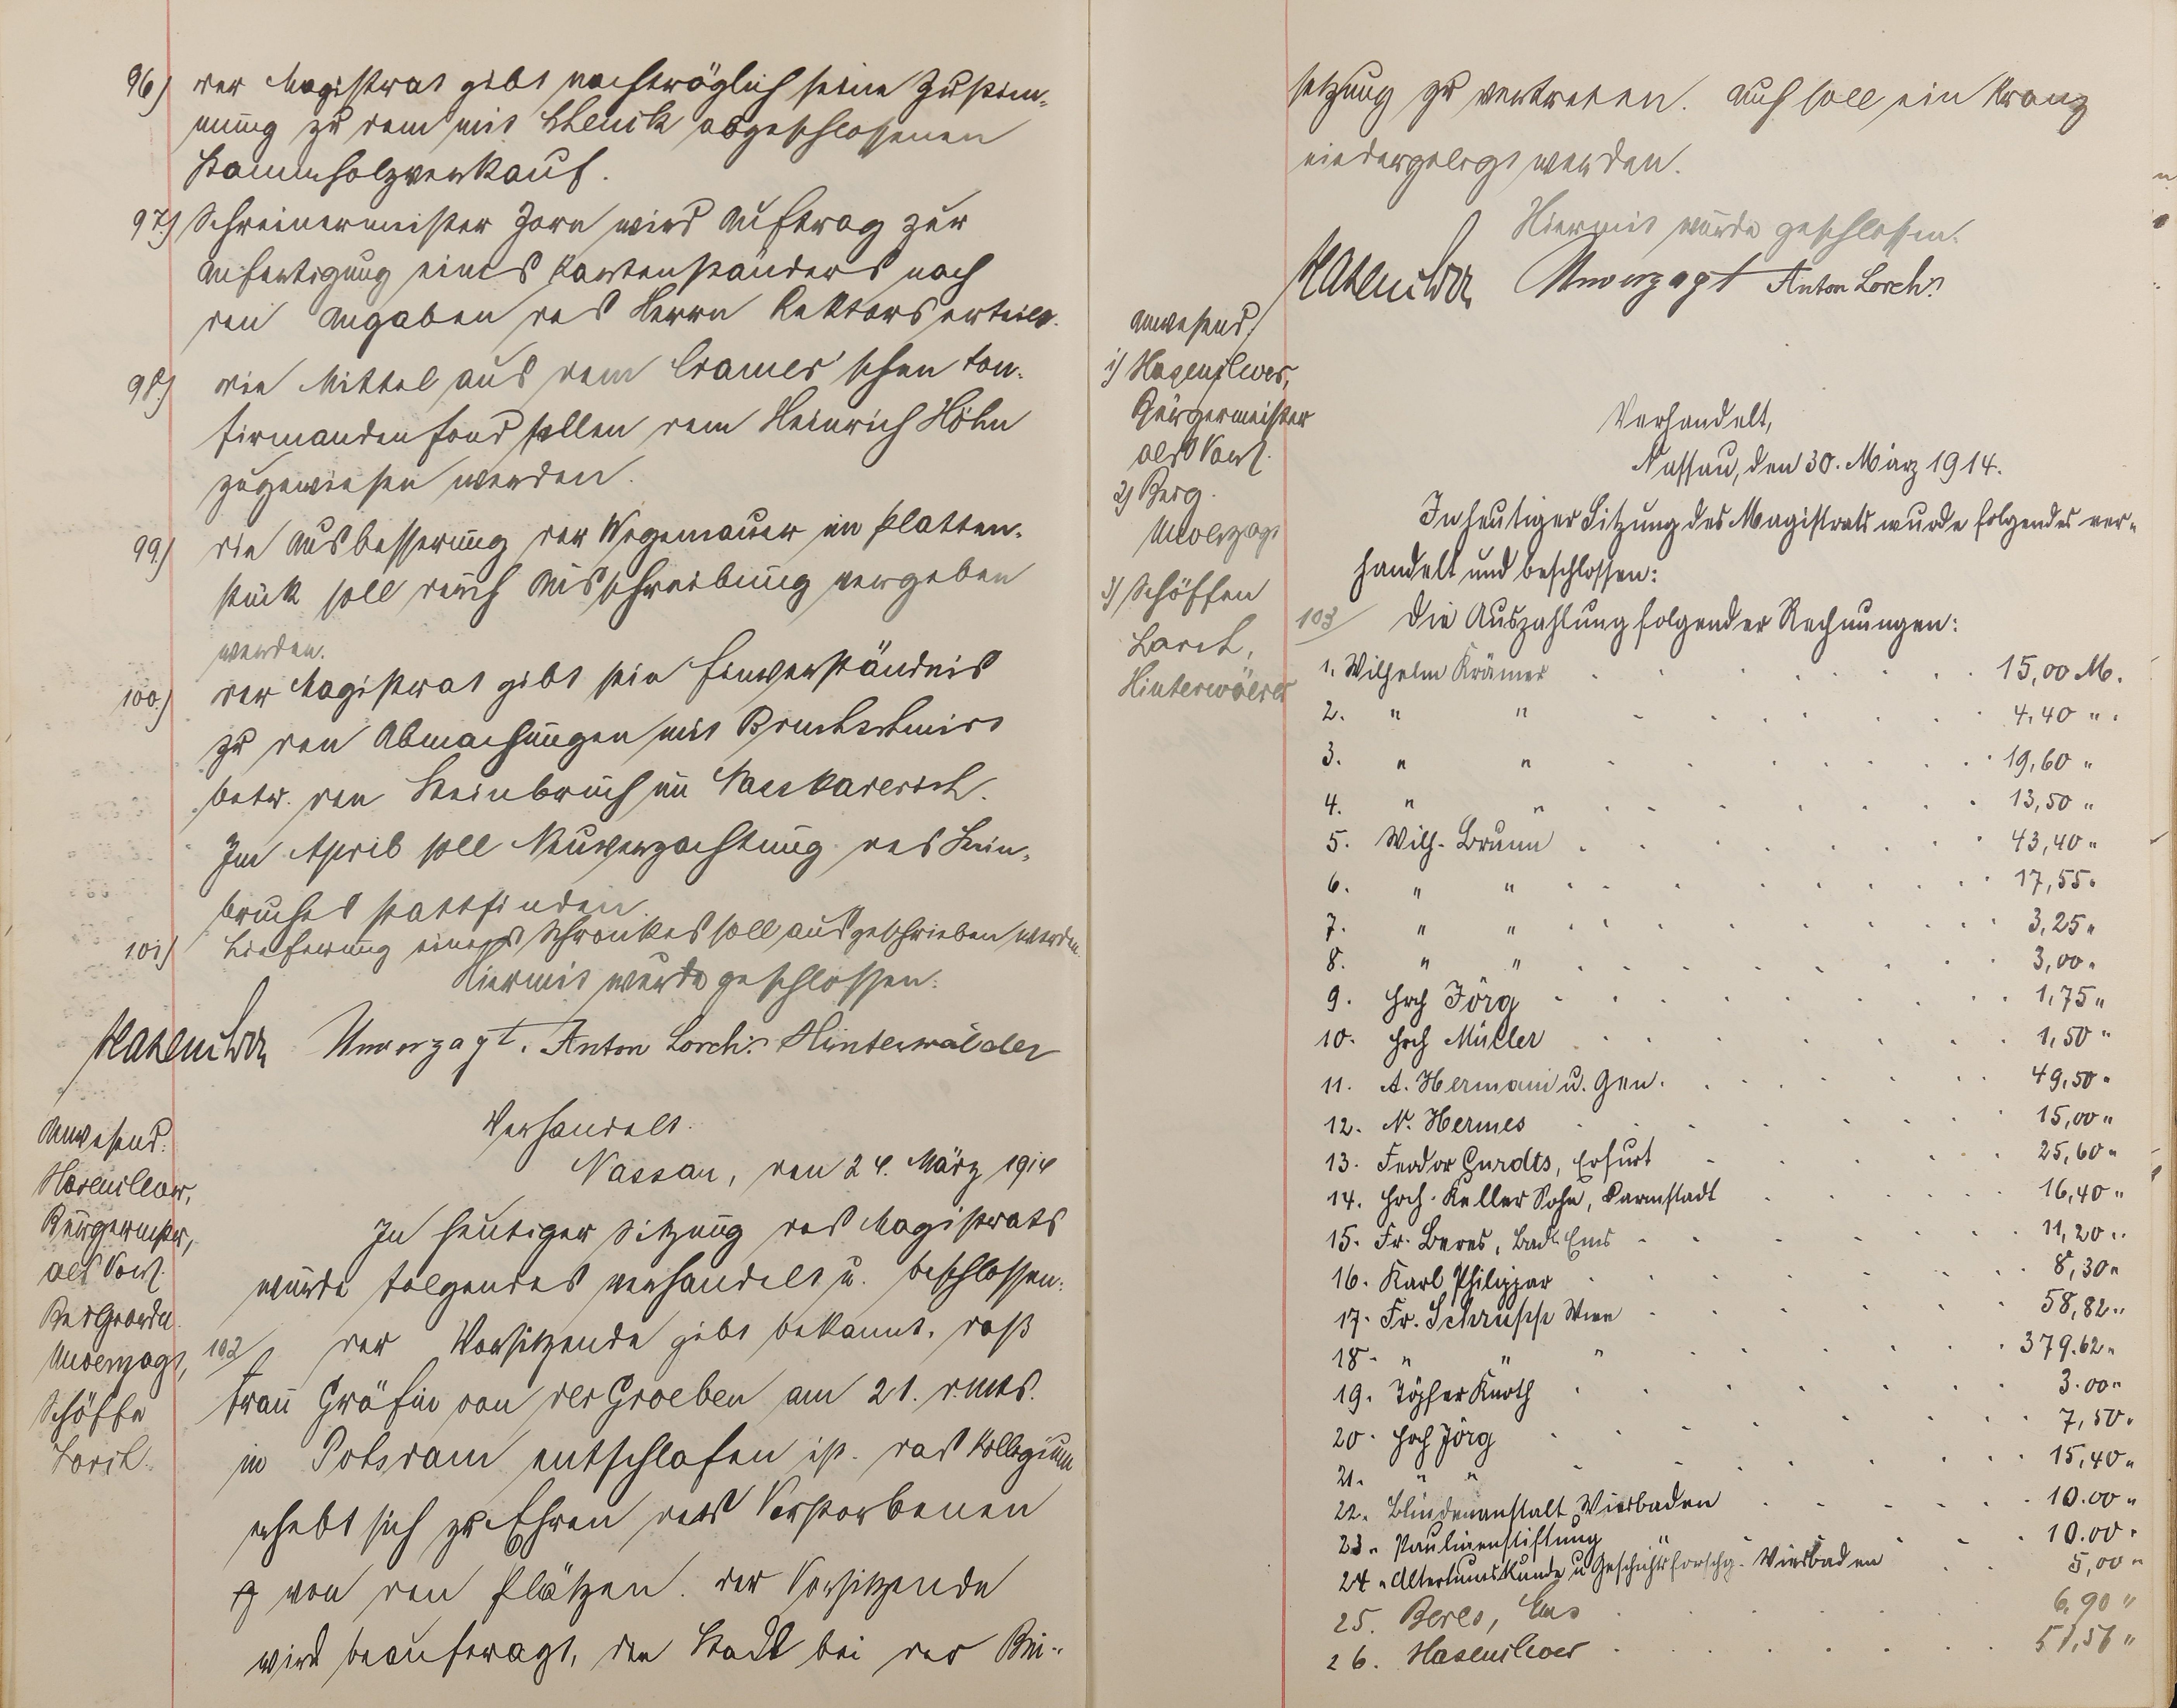 96.) Der Magistrat gibt nachträglich seine Zustim-
mung zu dem mit abgeschlossenen
Stammholzverkauf.
97.) Schreinermeister Zorn wird Auftrag zur
Anfertigung eines Kartenständers nach
den Angaben des Herrn Rektors erteilt.
98.) Die Mittel aus dem Cramer'schen Kon-
firmandenfond sollen dem Heinrich Höhn
zugewiesen werden.
99.) Die Ausbesserung der Wegemauer im Platten-
stück soll durch Ausschreibung vergeben
werden.
100.) Der Magistrat gibt sein Einverständnis
zu den Abmachungen mit
betr. den Steinbruch im
Im April soll Neuverpachtung des Stein-
bruches stattfinden.
101) Lieferung eines Schrankes soll ausgeschrieben werden.
Hiermit wurde geschlossen.
Hasenclever Unverzagt. Anton Lorch. Hinterwälder
Anwesend:
Hasenclever,
Bürgermstr,
als Vors.
Beigeordn.
Unverzagt,
Schöffe
Lorch.
Verhandelt.
Nassau, den 24. März 1914
In heutiger Sitzung des Magistrats
wurde folgendes verhandelt u. beschlossen:
102/ Der Vorsitzende gibt bekannt, daß
Frau Gräfin von der Groeben am 21. d. Mts.
in Potsdam entschlafen ist. Das Kollegium
erhebt sich zu Ehren der Verstorbenen
von den Plätzen. Der Vorsitzende
wird beauftragt, die Stadt bei der Bei-
setzung zu vertreten. Auch soll ein Kranz
niedergelegt werden.
Hiermit wurde geschlossen.
Hasenclever Unverzagt Anton Lorch.
Anwesend:
1) Hasenclever,
Bürgermeister
als Vors.
2) Beig.
Unverzagt
3) Schöffen
Lorch,
Hinterwälder
Verhandelt,
Nassau, den 30. März 1914.
In heutiger Sitzung des Magistrats wurde folgendes ver-
handelt und beschlossen:
103/ Die Auszahlung folgender Rechnungen:
1. Wilhelm Krämer 15,00 M.
2. " " 4,40 "
3. " " 19,60 "
4. " " 13,50 "
5. Wilh. Bruun 43,40 "
6. " " 17,55 "
7. " " 3,25 "
8. " " 3,00 "
9. Hch Jörg 1,75 "
10. Hch Müller 1,50 "
11. A. Hermani u. Gen. 49,50 "
12. N. Hermes 15,00 "
13. Feodor Gurdts, Erfurt 25,60 "
14. Hch. Keller Sohn, Darmstadt 16,40 "
15. Fr. Beres, Bad Ems 11,20 "
16. Karl Philippar 8,30 "
17. Fr. Schrupp Wwe 58,82 "
18. " " " 379.62 "
19. Töpfer Knoth 3.00 "
20. Hch Jörg 7,50 "
21. " " 15,40 "
22. Blindenanstalt Wiesbaden 10.00 "
23. Paulinenstiftung " 10.00 "
24. Altertumskunde u Geschichtsforschg. Wiesbaden 5,00 "
25. Beres, Ems 6,90 "
26. Hasenclever 51,56 "